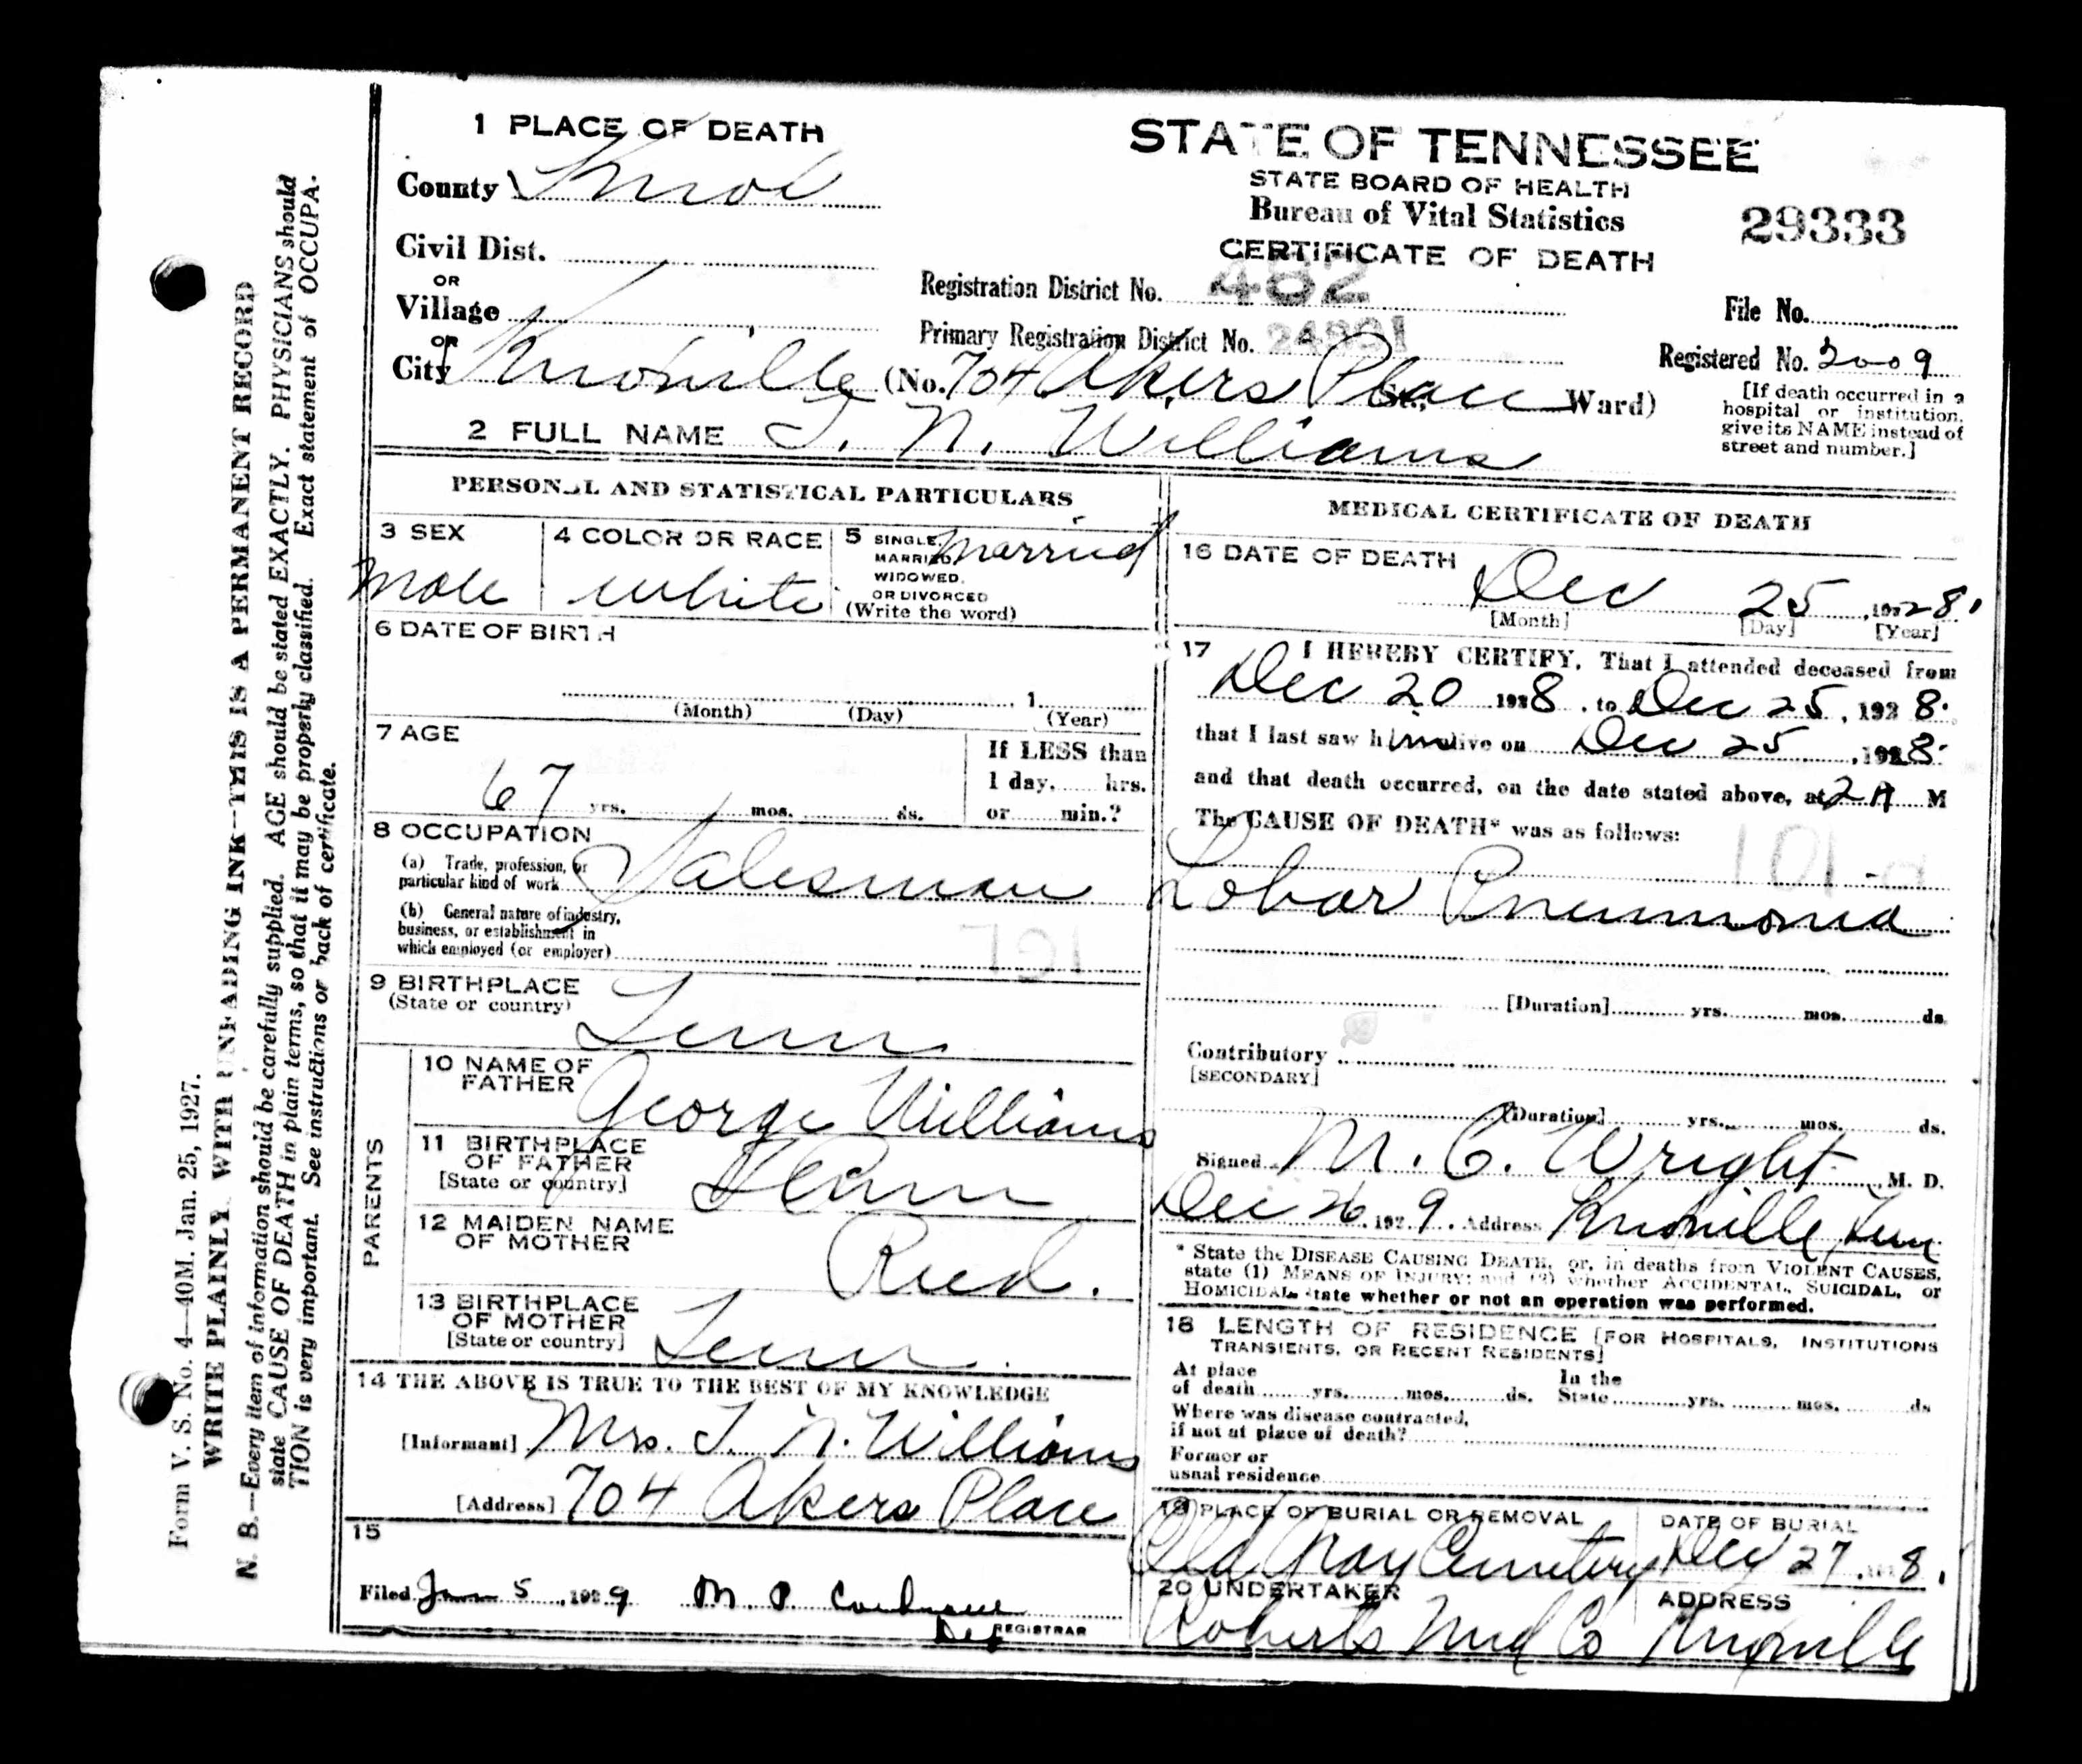 Form V. S. No. 4—40M. Jan. 25, 1927.
WRITE PLAINLY WITH UNFADING INK—THIS IS A PERMANENT RECORD
N. B.—Every item of information should be carefully supplied. AGE should be stated EXACTLY. PHYSICIANS should
state CAUSE OF DEATH in plain terms, so that it may be properly classified. Exact statement of OCCUPA-
TION is very important. See instructions or back of certificate.
1 PLACE OF DEATH
County Knox
Civil Dist.
OR
Village
OR
City Knoxville (No. 704 Akers Place St., Ward)
STATE OF TENNESSEE
STATE BOARD OF HEALTH
Bureau of Vital Statistics
CERTIFICATE OF DEATH
29333
Registration District No. 482
Primary Registration District No. 24801
File No.
Registered No. 2009
[If death occurred in a
hospital or institution,
give its NAME instead of
street and number.]
2 FULL NAME T. N. Williams
PERSONAL AND STATISTICAL PARTICULARS
3 SEX
Male
4 COLOR OR RACE
White
5 SINGLE,
MARRIED,
WIDOWED,
OR DIVORCED
(Write the word)
Married
6 DATE OF BIRTH
, 1
(Month) (Day) (Year)
7 AGE
67 yrs. mos. ds.
If LESS than
1 day, hrs.
or min.?
8 OCCUPATION
(a) Trade, profession, or
particular kind of work Salesman
(b) General nature of industry,
business, or establishment in
which employed (or employer)
721
9 BIRTHPLACE
(State or country)
Tenn
PARENTS
10 NAME OF
FATHER
George Williams
11 BIRTHPLACE
OF FATHER
[State or country]
Tenn
12 MAIDEN NAME
OF MOTHER
Reed.
13 BIRTHPLACE
OF MOTHER
[State or country]
Tenn.
14 THE ABOVE IS TRUE TO THE BEST OF MY KNOWLEDGE
[Informant] Mrs. T. N. Williams
[Address] 704 Akers Place
15
Filed Jan 5, 1929 M. P.
Dep REGISTRAR
MEDICAL CERTIFICATE OF DEATH
16 DATE OF DEATH
Dec 25, 1928.
[Month] [Day] [Year]
17 I HEREBY CERTIFY, That I attended deceased from
Dec 20 1928, to Dec 25, 1928.
that I last saw him alive on Dec 25, 1928.
and that death occurred, on the date stated above, at 2 A M
The CAUSE OF DEATH* was as follows:
101-a
Lobar Pneumonia
[Duration] yrs. mos. ds.
Contributory
[SECONDARY]
[Duration] yrs. mos. ds.
Signed M. C. Wright, M. D.
Dec 26, 1929. Address Knoxville, Tenn
* State the DISEASE CAUSING DEATH, or, in deaths from VIOLENT CAUSES,
state (1) MEANS OF INJURY; and (2) whether ACCIDENTAL, SUICIDAL, or
HOMICIDAL, state whether or not an operation was performed.
18 LENGTH OF RESIDENCE [FOR HOSPITALS, INSTITUTIONS
TRANSIENTS, OR RECENT RESIDENTS]
At place
of death yrs. mos. ds.
In the
State yrs. mos. ds
Where was disease contracted,
if not at place of death?
Former or
usual residence
19 PLACE OF BURIAL OR REMOVAL
Old Gray Cemetery
DATE OF BURIAL
Dec 27, 1928.
20 UNDERTAKER
Roberts Und Co
ADDRESS
Knoxville